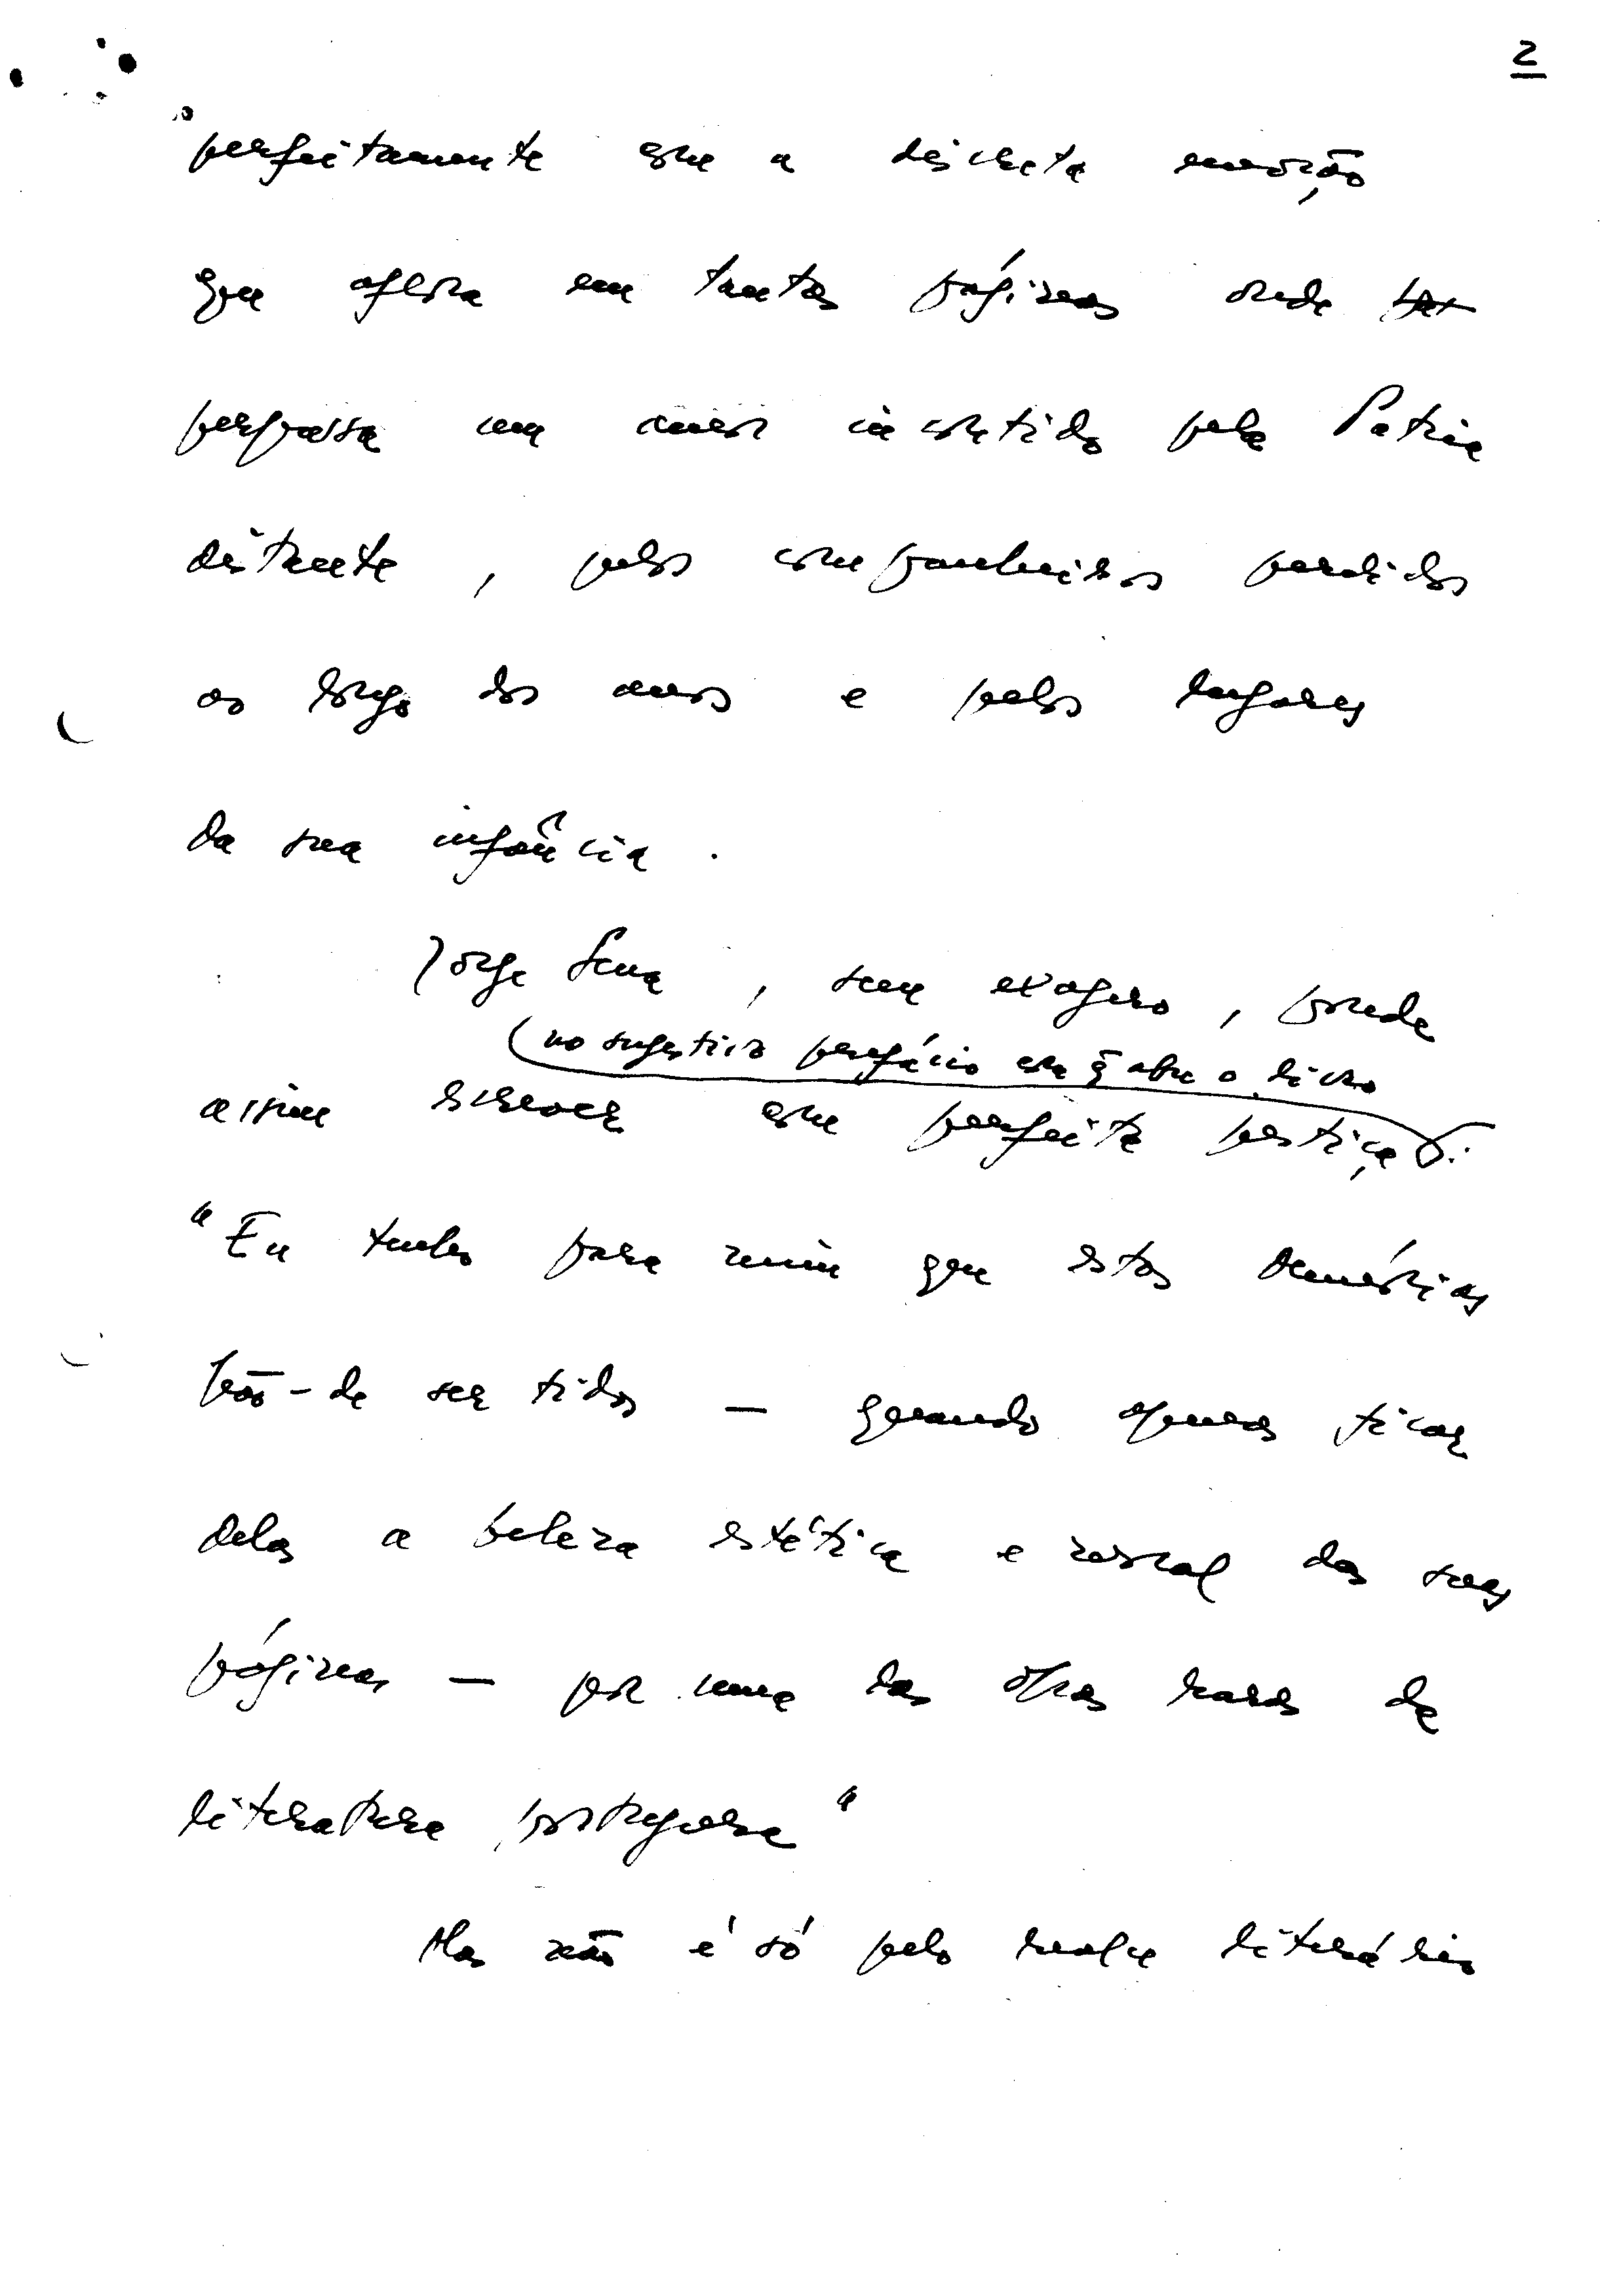 2
perfeitamente com a discreta emoção
que aflora em tantas páginas onde
perpassa um amor incontido pela Pátria
distante, pelos companheiros perdidos
ao longo dos anos e pelos lugares
da sua infância.
Jorge Sena, sem exagero, pode
(no sugestivo prefácio com q̃ abre o livro
assim escrever com perfeita justiça):
"Eu tenho para mim que estas Memórias
hão-de ser tidas — quando apenas ficar
delas a beleza estética e moral das suas
páginas — por uma das obras raras da
literatura portuguesa"
Mas não é só pelo realce literário